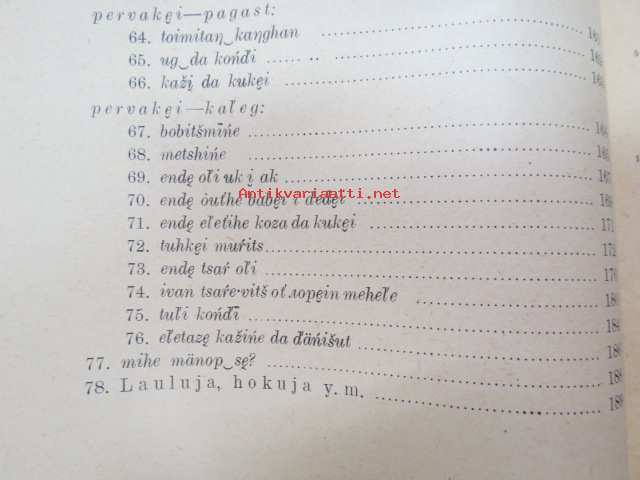 pervakęi—pagast:
64. toimitaŋ‿kaŋghan
65. ug‿da końďi
66. kažį da kukęi
pervakęi—kaľeg:
67. bobitšmīńe
68. metshińe
69. endę oľi uk į ak
70. endę òuťhe babęi i ďedęi
71. endę eľeťihe koza da kukęi 171
72. tuhkęi muŕits
73. endę tsaŕ oľi
74. ivan tsaŕe·vitš oť лopęin meheľe
75. tuľi końďī
76. eľetazę kažińe da ďäńišut
77. mihe mänop‿sę?
78. Lauluja, hokuja y. m.
Antikvariaatti.net